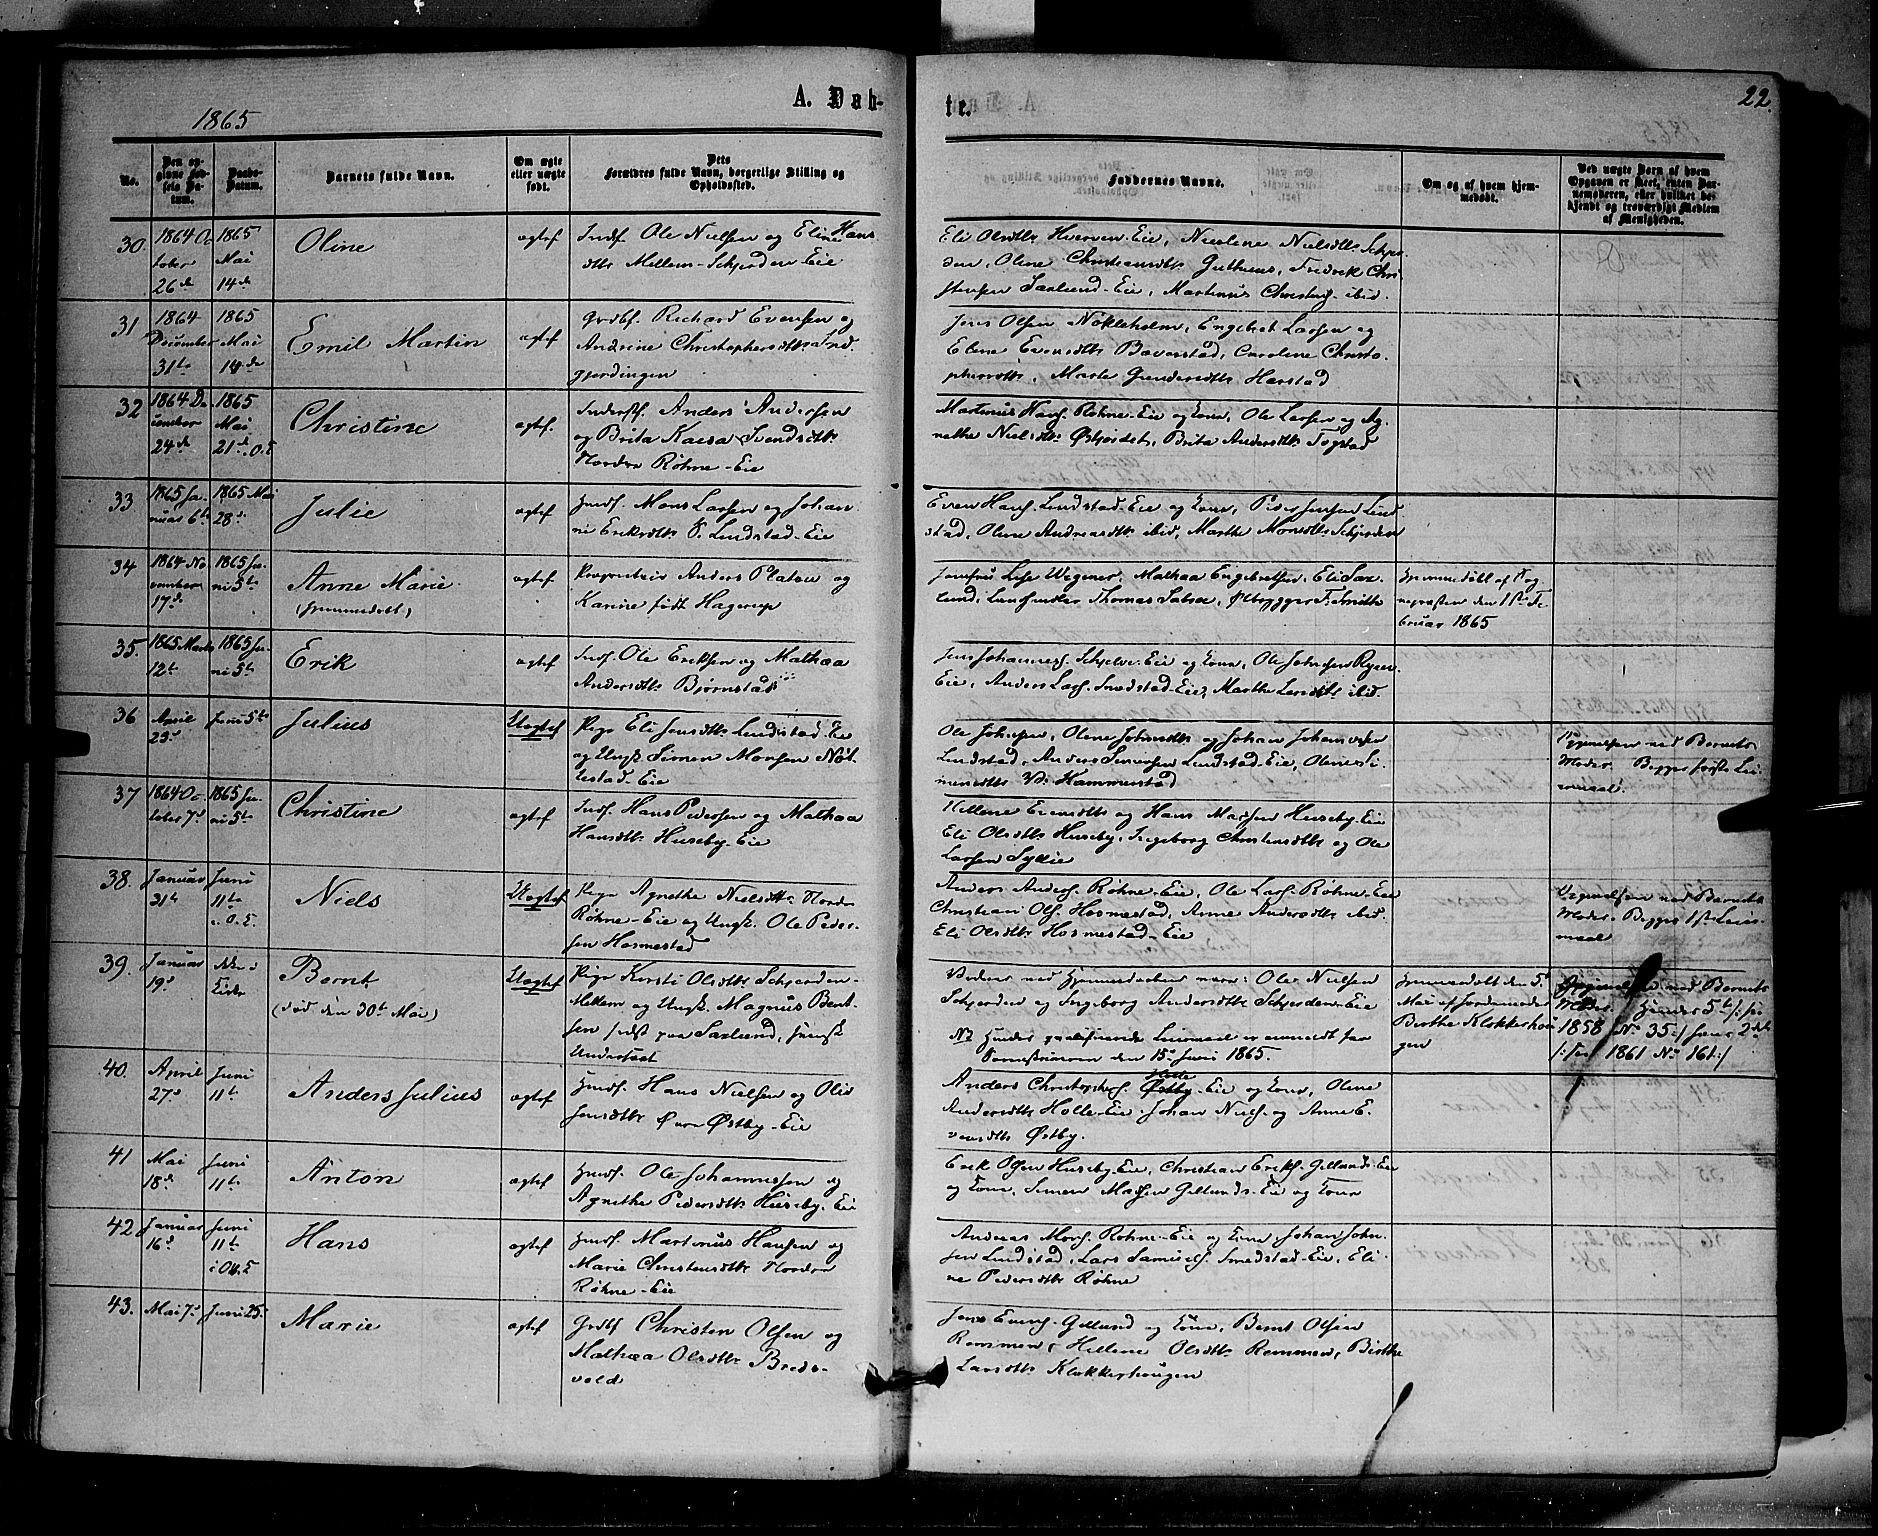 1865
A. Døb-
te.
22.
No.
Den op-
givne Fød-
sels Da-
tum.
Daabs-
Datum.
Barnets fulde Navn.
Om ægte
eller uægte
født.
Dets
Forældres fulde Navn, borgerlige Stilling og
Opholdssted.
Faddernes Navne.
Om og af hvem hjem-
medøbt.
Ved uægte Børn af hvem
Opgaven er skeet, enten Bar-
nemoderen, eller hvilket be-
kjendt og troværdigt Medlem
af Menigheden.
30.
1864 Oc
tober
26de
1865
Mai
14de
Oline
ægtef
Inds. Ole Nielsen og Eline Hans
dtr Mellem-Schjerden Eie
Eli Olsdtr Hverven-Eie, Nicoline Nielsdtr Schjer
den, Oline Christiansdtr Guthuus, Fredrik Chri
stensen Saxlund-Eie, Martinus Christens. ibid.
31
1864
December
31te
1865
Mai
14de
Emil Martin
ægtef
Grdbr. Richard Evensen og
Andrine Christophersdtr
gjerdingen
Jens Olsen Nökleholm, Engebret Larsen og
Elene Evensdtr Baverstad, Caroline Christo
phersdtr, Marte Gundersdtr Harstad
32
1864 De
cember
24de
1865
Mai
21de O.E
Christine
ægtef.
Inderst. Anders Andersen
og Brita Kaisa Svendsdtr
Nordre Røhne-Eie
Martinus Hans. Røhne-Eie og Kone, Ole Larsen og Ag
nethe Nielsdtr Østgjerdet, Brita Andersdtr Togstad
33
1865 Ja
nuar 6te
1865 Mai
28de
Julie
ægtef
Husm. Mons Larsen og Johan
ne Eriksdtr S. Lundstad-Eie
Even Hans. Lundstad-Eie og Kone, Peder Jensen Lund
stad, Oline Andreasdtr ibid, Marthe Monsdtr Schjerden
34
1864 No
vember
17de
1865 Ju
ni 5te
Anne Marie
(hjemmedøbt)
ægtef
Proprietair Anders Platou og
Karine født Hagerup
Jomfru Lise Wegener, Mathea Engebretsen, Eli Sax
lund, Thomas , Ølbrygger F. Smith
Hjemmedøbt af Sog
nepræsten den 1ste Fe
bruar 1865
35.
1865 Marts
12te
1865 Ju
ni 5te
Erik
ægtef
Inds. Ole Eriksen og Mathea
Andersdtr Bjørnstad
Jens Johannes. Schjelve-Eie og Kone, Ole Johnsen Ryen
Eie, Anders Lars. Smedstad-Eie, Marthe Larsdtr ibid
36
April
23de
Juni 5te
Julius
Uægtef
Pige Eli Jensdtr Lundstad-Eie
og Ungk. Simen Monsen Nöt
testad-Eie
Ole Johnsen, Oline Johnsdtr og Johan Johannesen
Lundstad, Anders Simensen Lundstad-Eie, Oline Si
mensdtr V. Hammerstad
Opgivelsen ved Barnets
Moder. Begges første Lei
ermaal.
37
1864 Oc
tober 7de
1865 Ju
ni 5te
Christine
ægtef
Inds. Hans Pedersen og Mathea
Hansdtr Huseby-Eie
Hellene Evensdtr og Hans Madsen Huseby-Eie
Eli Olsdtr Huseby, Ingeborg Christensdtr og Ole
Larsen Syllie
38.
Januar
31te
Juni
11te
i O.E.
Niels
Uægtef
Pige Agnethe Nielsdtr Nordre
Røhne-Eie og Ungk. Ole Peder-
sen Hosmestad
Anders Anders. Røhne-Eie, Ole Lars. Røhne-Eie
Christian Ols. Hosmestad, Anne Andersdtr ibid.
Eli Olsdtr Hosmestad-Eie
Opgivelsen ved Barnets
Moder. Begges 1ste Leier
maal
39.
Januar
19de
Ikke i
Kirke
Bernt
(død den 30te Mai)
Uægtef
Pige Kersti Olsdtr Schjerden-
Mellem og Ungk. Magnus Bent
sen født paa Saxlund, svensk
Undersaat
Vidner ved Hjemmedaaben vare: Ole Nielsen
Schjerden og Ingeborg Andersdtr Schjerden-Eie
NB Hendes qualificerede Leiermaal er anmeldt for
den 15de Juni 1865.
Hjemmedøbt den 5te
Mai af Jordemoder
Birthe Klokkerhou
gen
Opgivelse ved Barnets
Moder. Hendes 5te /: fu
1858 No 35 :/ hans 2det
/: 1861 No 161 :/
40.
April
27de
Juni
11te
Anders Julius
ægtef
Husm. Hans Nielsen og Olia
Jensdtr Øvre Østby-Eie
Anders Christophers. Østby-Eie og Kone, Oline
Andersdtr Holle-Eie, Johan Niels. og Anne E-
vensdtr Østby.
41
Mai
18de
Juni
11te
Anton
ægtef
Husm. Ole Johannessen og
Agnethe Pedersdtr Huseby-Eie
Erik Olsen Huseby-Eie, Christian Eriks. Gillunds Eie
og Kone, Simen Madsen Gillunds-Eie og Kone
42
Januar
16de
Juni
11te
i O.E
Hans
ægtef
Husm. Martinus Hansen og
Marie Christensdtr Nordre
Røhne-Eie
Andreas Mons. Røhne-Eie og Kone, Johan John
sen Lundstad, Lars Samuels. Smedstad-Eie, Eli
ne Pedersdtr Røhne
43.
Mai 7de
Juni 25de
Marie
ægtef
Grdbr Christen Olsen og
Mathea Olsdtr Breds-
vold
Jens Evens. Gillund og Kone, Bernt Olsen
Remmen, Hellene Olsdtr Remmen, Birthe
Larsdtr Klokkerhougen